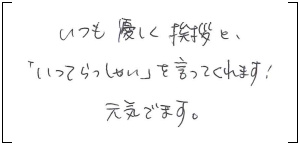 いつも優しく挨拶と、
「いってらっしゃい」を言ってくれます！
元気でます。